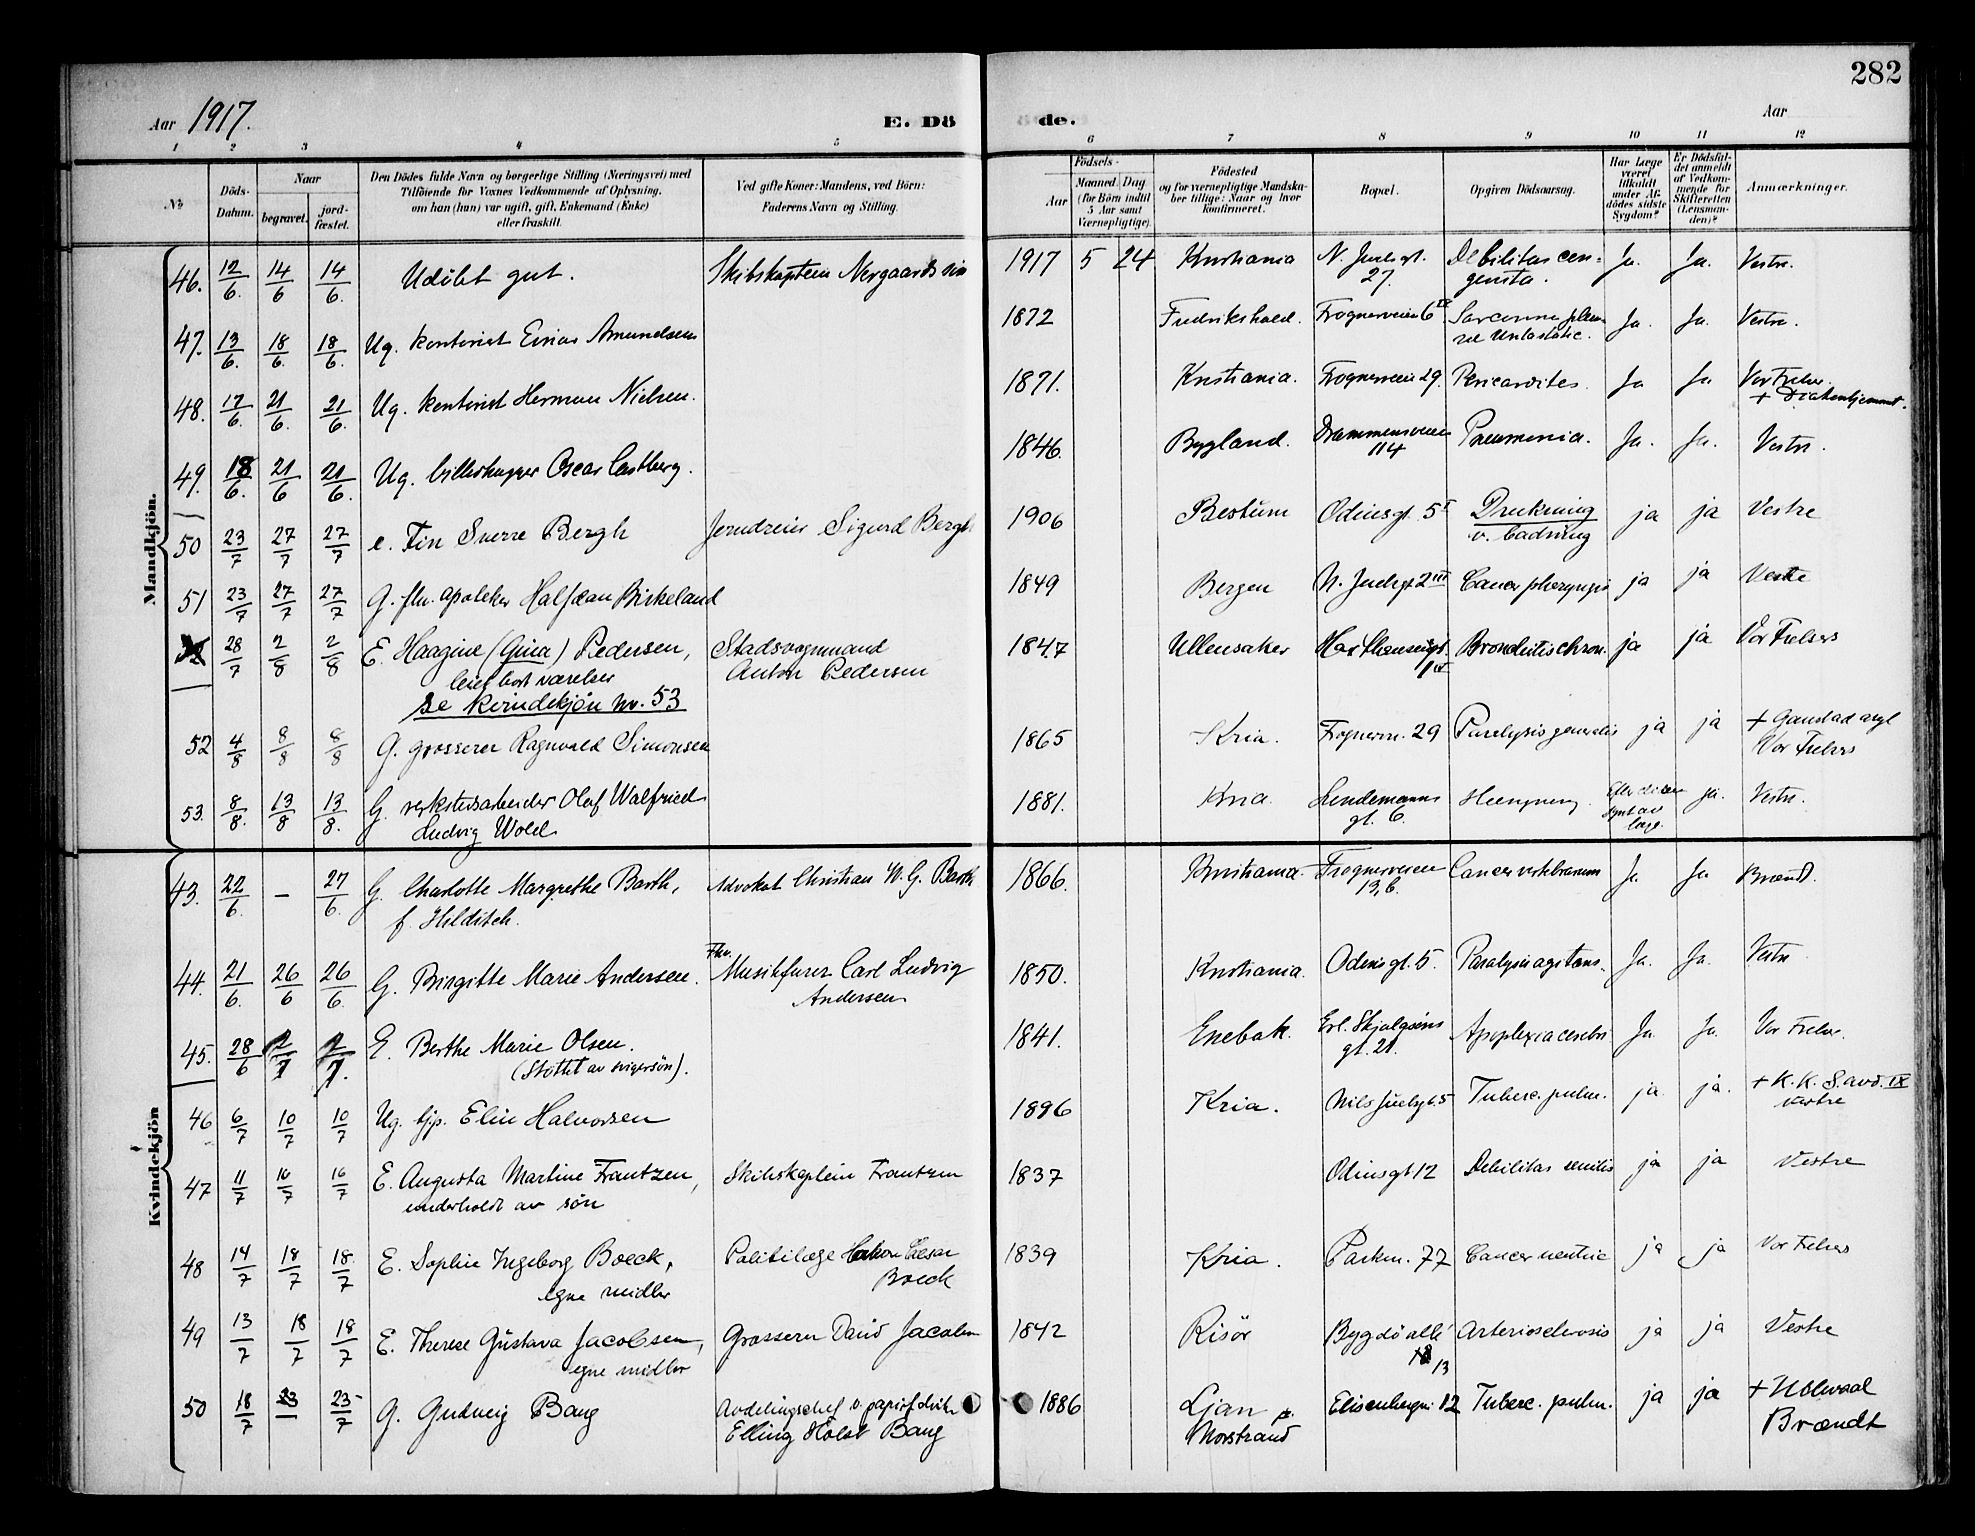 282
Aar 1917. E. Dö de. Aar
1 2 3 4 5 6 7 8 9 10 11 12
No
Döds-Datum.
Naar
begravet.
jord-fæstet.
Den Dödes fulde Navn og borgerlige Stilling (Næringsvei) med
Tilföiende for Voxnes Vedkommende af Oplysning,
om han (hun) var ugift, gift, Enkemand (Enke)
eller fraskilt.
Ved gifte Koner: Mandens, ved Börn:
Faderens Navn og Stilling.
Födsels-
Aar
Maaned Dag
(for Börn indtil
5 Aar samt
Værnepligtige).
Födested
og for værnepligtige Mandska-
ber tillige: Naar og hvor
konfirmeret.
Bopæl.
Opgiven Dödsaarsag.
Har Læge
været
tilkaldt
under Af-
dödes sidste
Sygdom?
Er Dödsfal-
det anmeldt
af Vedkom-
mende for
Skifteretten
(Lensman-
den)?
Anmærkninger.
Mandkjön.
46. 12/6. 14/6 14/6. Udöbt gut. Skibskaptein Nergaards sön 1917 5 24 Kristiania N. Juels gt. 27. Debilitas congenita. Ja. Ja. Vestre.
47. 13/6. 18/6. 18/6. Ug. kontorist Einar Amundsen 1872 Fredrikshald. Frognerveien 6 Ja. Ja. Vestre.
48. 17/6. 21/6. 21/6. Ug. kontorist Herman Nielsen. 1871. Kristiania. Frognerveien 29. Pericarditis. Ja Ja Vor Frelser.
+ Diakonhjemmet.
49. 18/6. 21/6 21/6. Ug. billedhugger Oscar Castberg. 1846. Bygland. Drammensveien 114 Pneumonia. Ja. Ja. Vestre.
50 23/7 27/7 27/7 e. Fin Sverre Bergh Sigurd Bergh 1906 Bestum Odinsgt. 5 I Drukning
v. badning ja ja Vestre
51 23/7 27/7 27/7 G. fhv. apoteker Halfdan Birkeland 1849 Bergen N. Juelsgt 2 III Cancer pharyngis ja ja Vestre
28/7 2/8 2/8 E. Haagine (Gina) Pedersen, Stadsvognmand 1847 Ullensaker Bronchitis chron. ja ja Vor Frelsers
leiet bort værelser Anton Pedersen
se kvindekjön nr. 53
52 4/8 8/8 8/8 G. grosserer Ragnvald Simonsen 1865 Kria. Frognerv. 29 Paralysis generalis ja ja + Gaustad asyl
Vor Frelsers
53. 8/8. 13/8 13/8. G. verkstedsarbeider Olaf Walfried 1881. Kria. Lindemans gt. 6. Hængning. ja. Vestre.
Ludvig Wold
Kvindekjön
43. 22/6. – 27/6. G. Charlotte Margrethe Barth, Advokat Christian W. G. Barth 1866. Kristiania. Frognerveien 13, b. Cancer vertebrarum Ja Ja Brændt.
f. Hilditch.
44. 21/6. 26/6 26/6. G. Birgitte Marie Andersen. Fhv. Musikfurer Carl Ludvig 1850. Kristiania. Odinsgt. 5. Paralysis agitans. Ja. Ja. Vestre
Andersen
45. 28/6 2/7 2/7. E. Berthe Marie Olsen. 1841. Enebak. Erl. Skjalgsöns gt. 21. Apoplexia cerebri Ja. Ja. Vor Frelser.
(Stöttet av svigersön).
46 6/7 10/7 10/7 Ug. hjp. Elin Halvorsen 1896 Kria. Nils Juelsgt 5 Tuberc. pulm. ja ja. + K. K. S. avd. IX
Vestre
47 11/7 16/7 16/7 E. Augusta Martine Frantzen, Skibskaptein Frantzen 1837 Odinsgt 12 Debilitas senilis ja ja Vestre
underholdt av sön
48 14/7 18/7 18/7 E. Sophie Ingeborg Boeck, Politilæge Cæsar 1839 Kria. Parkv. 77 Cancer ventric ja ja Vor Frelsers
egne midler Boeck
49 13/7 18/7 18/7 E. Therese Gustava Jacobsen, Grosserer David Jacobsen 1842 Risör Bygdö allé 13 Arteriosclerosis ja ja Vestre
egne midler
50 18/7 23 23/7 G. Gudveig Bang Avdelingschef v. papirfabrik 1886 Ljan Elisenbergv. 12 Tuberc. pulm. ja ja
Elling Holst Bang Brændt